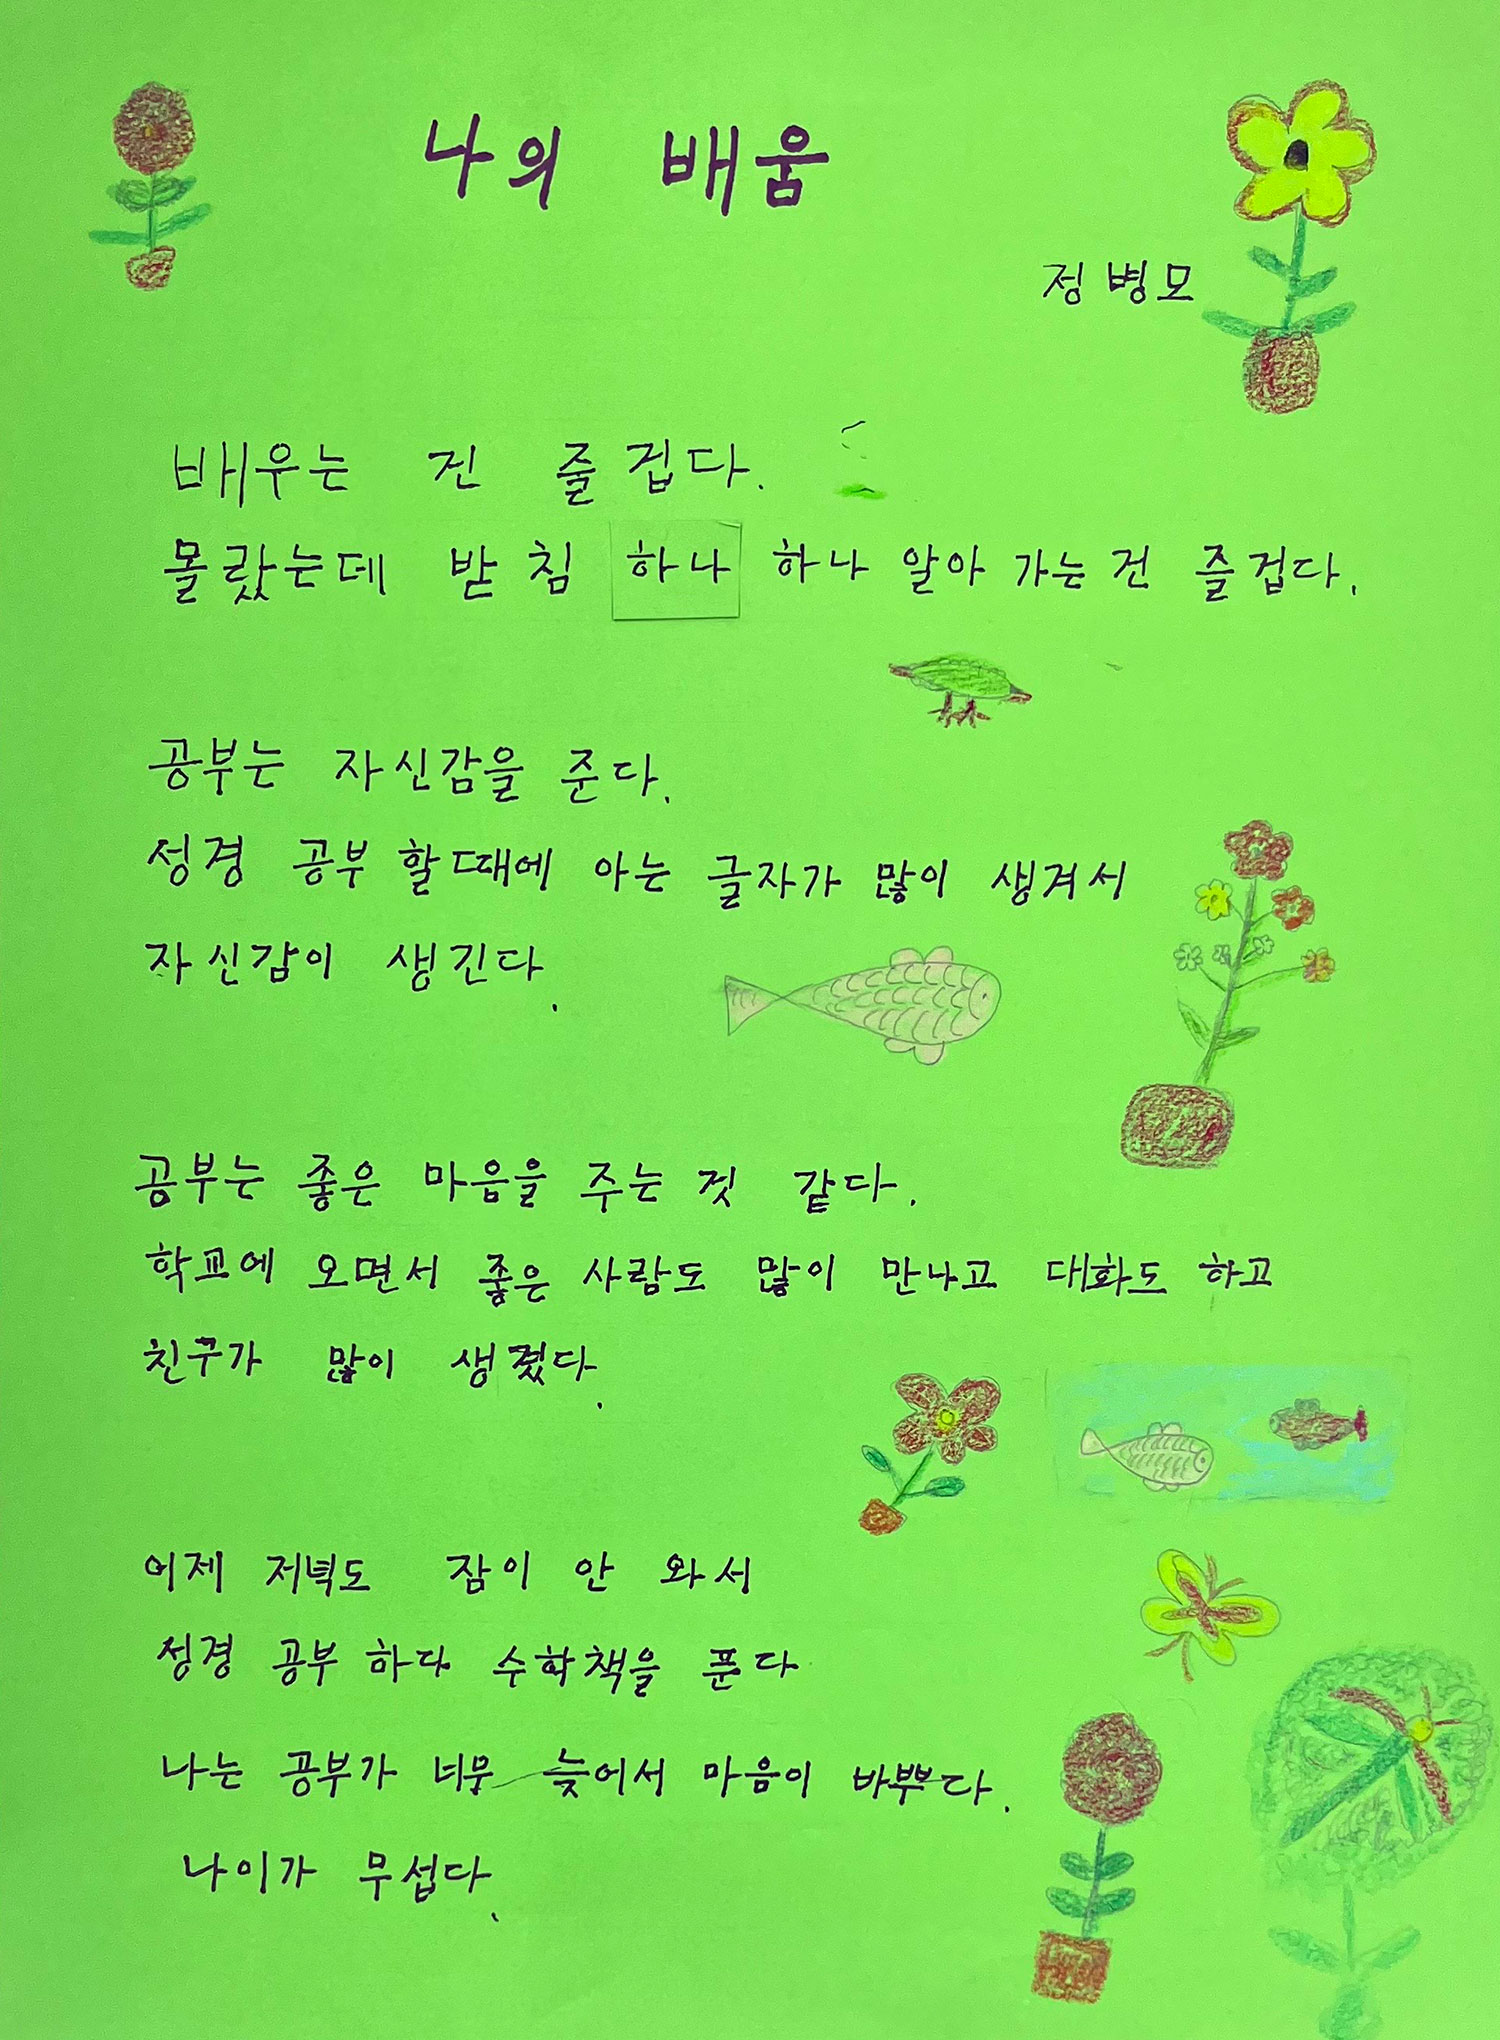 나의 배움
정병모
배우는 건 즐겁다.
몰랐는데 받침 하나 하나 알아 가는 건 즐겁다.
공부는 자신감을 준다.
성경 공부 할때에 아는 글자가 많이 생겨서
자신감이 생긴다.
공부는 좋은 마음을 주는 것 같다.
학교에 오면서 좋은 사람도 많이 만나고 대화도 하고
친구가 많이 생겼다.
이제 저녁도 잠이 안 와서
성경 공부 하다 수학책을 푼다
나는 공부가 너무 늦어서 마음이 바쁘다.
나이가 무섭다.